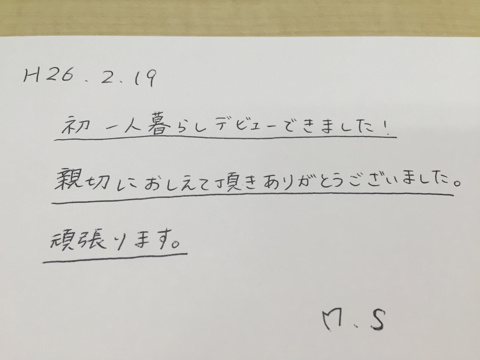 H26.2.19
初 一人暮らしデビューできました!
親切におしえて頂きありがとうございました。
頑張ります。
M.S